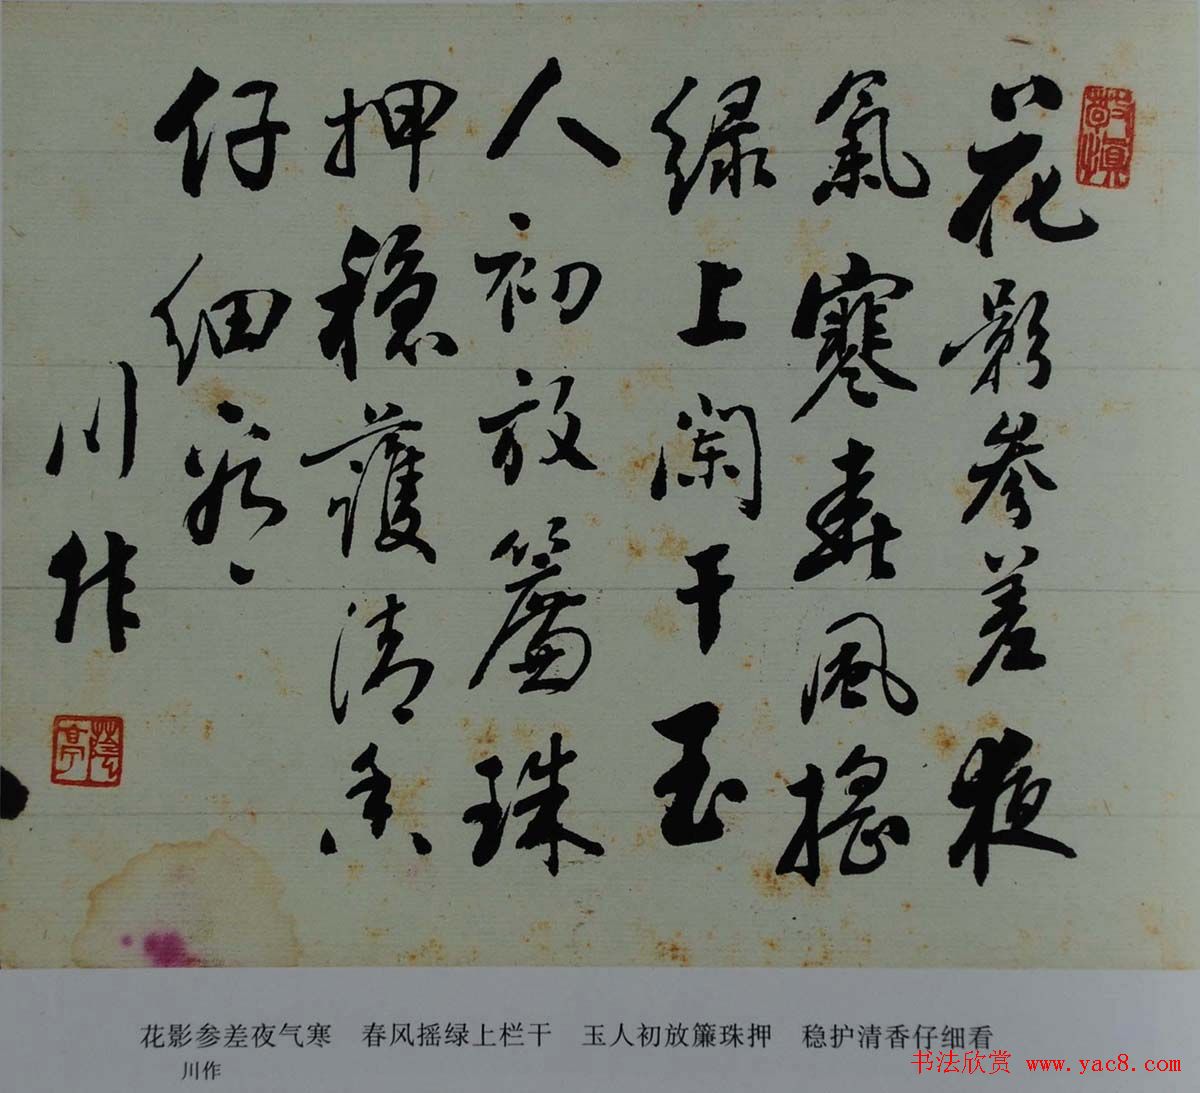 花影參差夜
氣寒春風搖
緑上闌干玉
人初放簾珠
押穩護清香
仔細看
川作
蔭亭
花影参差夜气寒 春风摇绿上栏干 玉人初放簾珠押 稳护清香仔细看
川作
书法欣赏 www.yac8.com